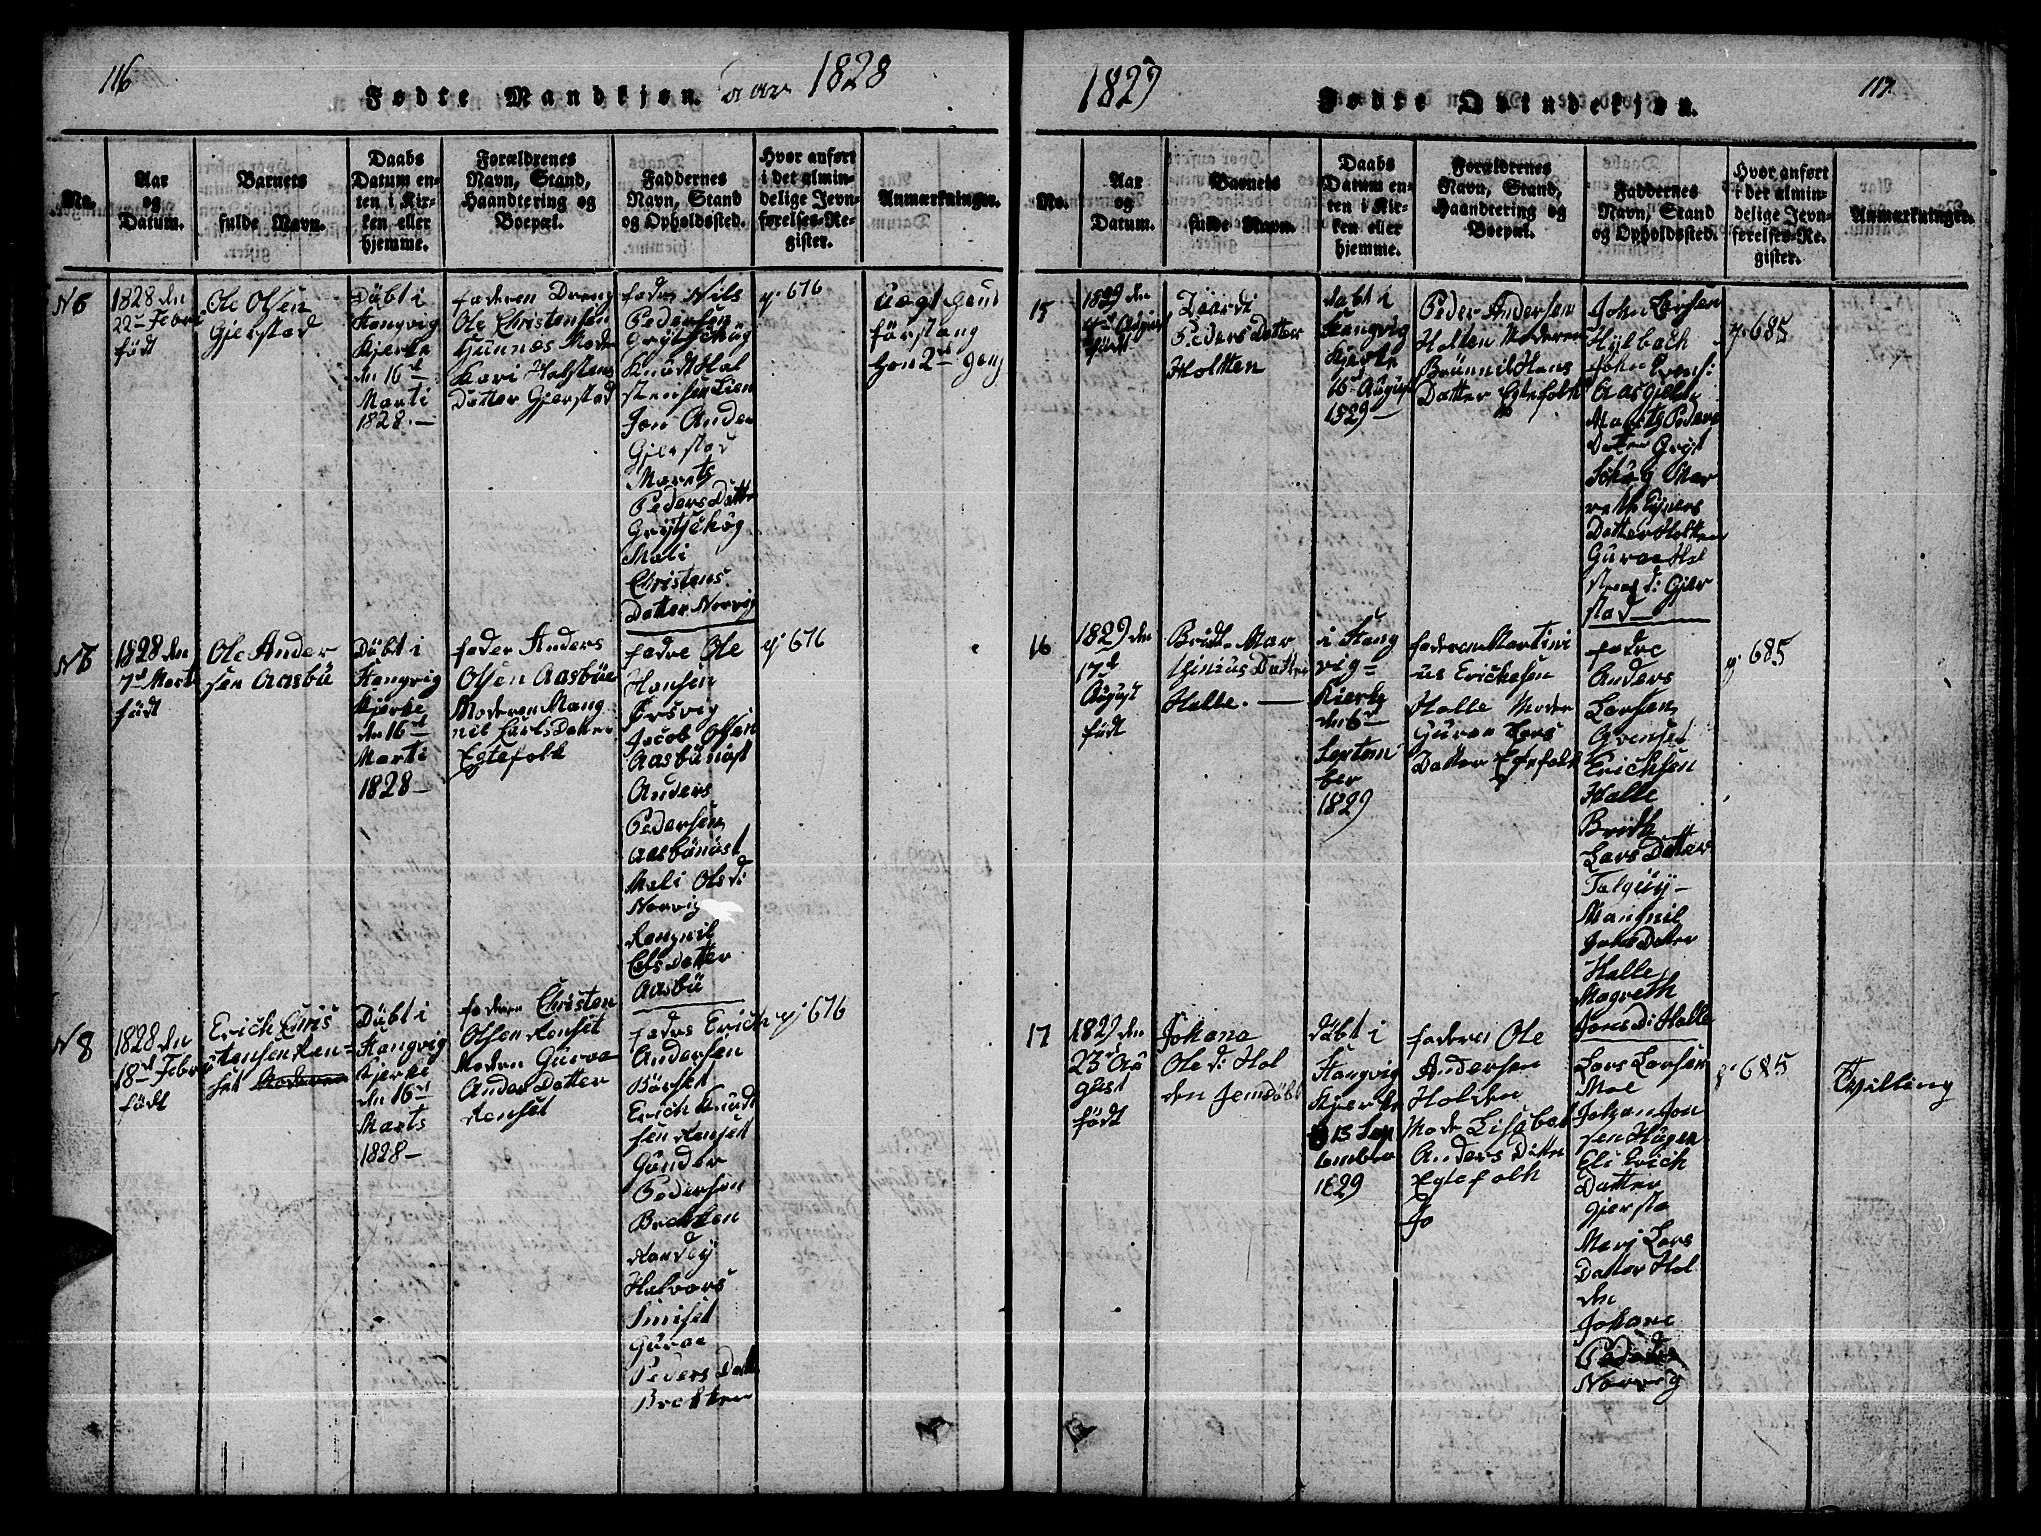 116
Fødte Mandkjøn. aar 1828
No.
Aar
og
Datum.
Barnets
fulde Navn.
Daabs
Datum en-
ten i Kir-
ken eller
hjemme.
Forældrenes
Navn, Stand,
Haandtering og
Boepæl.
Faddernes
Navn, Stand
og Opholdssted.
Hvor anført
i det almin-
delige Jevn-
førelses-Re-
gister.
Anmærkninger.
N 6
1828 den
22de Febri
födt
Ole Olsen
Gjerstad
Däbt i
Stangvig
Kjerke
den 16de
Marti
1828.—
faderen Dreng
Ole Christensen
Hunnæs Mode
Kari Holstens
Datter Gjerstad
fadre Nils
Pedersen
Grytschög
Knudt Hal
stensen Lien
Jon Ander
Gjerstad
Marits
Peders Datte
Grytschög
Mali
Christens
Datter Norvig
p. 676
uægt
förstang
1828 den
7de Mart
födt
Ole Ander
sen Aasbü
Däbt i
Stangvig
Kjerke
den 16de
Marti
1828—
fader Anders
Olsen Aasbüe
Moderen Mang
nil Larls Datter
Egtefolk
fadre Ole
Hansen
Jacob Olsen
Aasbünäst
Anders
Pedersen
Aasbünäst
Mali Ols di
Norvig
Rangnil
Datter
Aasbü
p. 676
N 8
1828 den
18de Febru
födt
Erich Chris
tensen Ren-
set Moderen
Däbt i
Stangvig
Kjerke
den 16de
Marts
1828—
faderen Christen
Olsen Renset
Moderen Gurva
Anders Datter
Renset
fadre Erich
Andersen
Börset
Erich Knudt
sen Renset
Günder
Pedersen
Brekken
Randey
Halvors
Gurae
Peders Datte
Brekken
p. 676
1829
Fødte Qvindekjøn.
117
No.
Aar
og
Datum.
Barnets
fulde Navn.
Daabs
Datum en-
ten i Kir-
ken eller
hjemme.
Forældrenes
Navn, Stand,
Haandtering og
Boepæl.
Faddernes
Navn, Stand
og Opholdssted.
Hvor anført
i det almin-
delige Jevn-
førelses-Re-
gister.
Anmærkninger.
15
1829 den
August
födt
Peders Datter
Holkten
däbt i
Stangvig
Kjerke
16de August
1829—
Peder Andersen
Holten Moderen
Brünnil Hans
Datter Egtefolk
John Larsen
Hylbach
John
Marits Peders
Datter Gryt
Schög Mar
reth Ejners
Datter Holten
Gurae Hal
stens di Gjer
stad
p. 685
16
1829 den
17de
August
födt
Bridt Mar
thinius Datter
Halle.—
i Stang
vig-
Kierke
den 6de
Septem
ber
1829
faderen Martini
us Erichsen
Halle Moder
Gurae Lars
Datter Egtefolk
fadre
Anders
Larsen
Erichsen
Halle
Bridt
Lars Datter
Talgüy—
Mangnil
Johs Datter
Halle
Magreth
Jons di Halle
p. 685
17
1829 den
23de Aü
gust
födt
Johana
Ole di Hol
den
däbt i
Stangvig
Kjerke
13 Sep
tember
1829
faderen Ole
Andersen
Holden
Mode Lisabet
Anders Datter
Egtefolk
Jo
Lars Larsen
Moe
Johan Jon
sen Hagen
Eli Erich
Datter
Gjersta
Marj Lars
Datter Hol
den
Johane
Norvig
p. 685
Tvilling